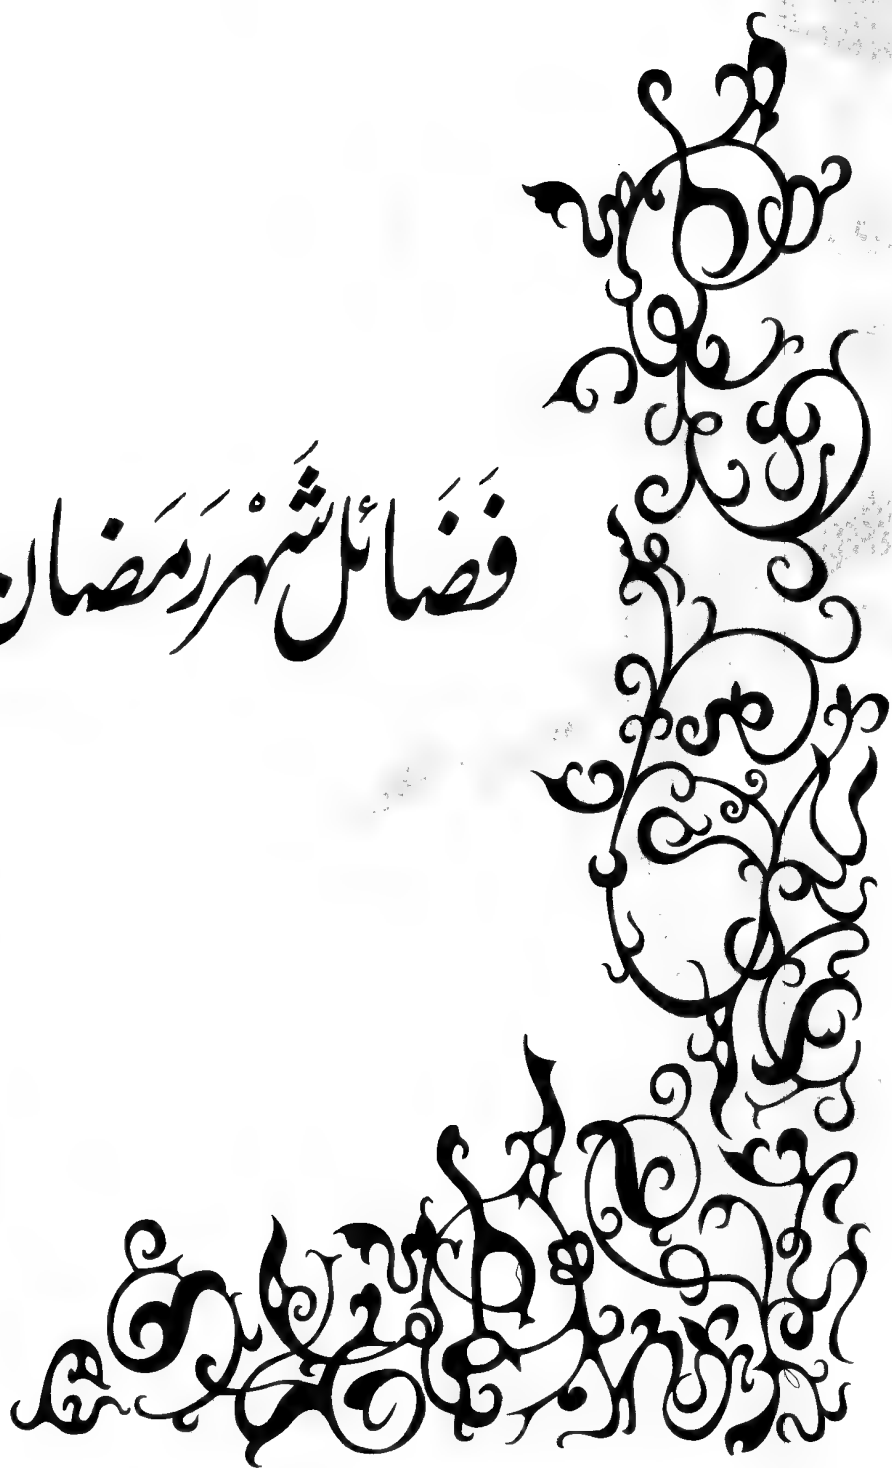 فَضَائل شَهْر رَمَضان